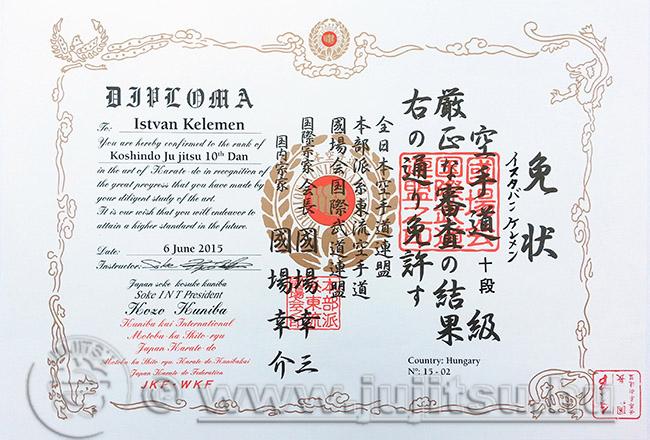 DIPLOMA
To: Istvan Kelemen
You are hereby confirmed to the rank of
Koshindo Ju jitsu 10th Dan
in the art of Karate-do in recognition of
the great progress that you have made by
your diligent study of the art.
It is our wish that you will endeavor to
attain a higher standard in the future.
Date: 6 June 2015
Instructor:
Japan soke kosuke kuniba
Soke INT President
Kozo Kuniba
Kuniba kai International
Motobu-ha Shito-ryu
Japan Karate-do
Motobu-ha Shito-ryu. Karate-do Kunibakai
Japan Karate-do Federation
JKF-WKF
免状
イスタバン ケレメン
空手の道 十段 級
厳正な審査の結果
右の通り免許す
全日本空手道連盟
本部派糸東流空手道
國場会国際武道連盟
国際宗家 会長 國場幸三
国内宗家 國場幸介
Country: Hungary
Nº: 15 - 02
© www.jujitsu.ru